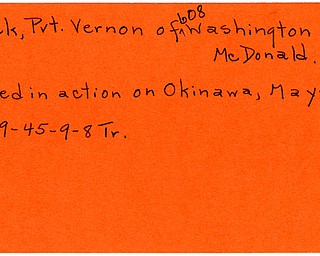 ck, Pvt. Vernon of 608 Washington
McDonald.
ed in action on Okinawa, May
9-45-9-8 Tr.